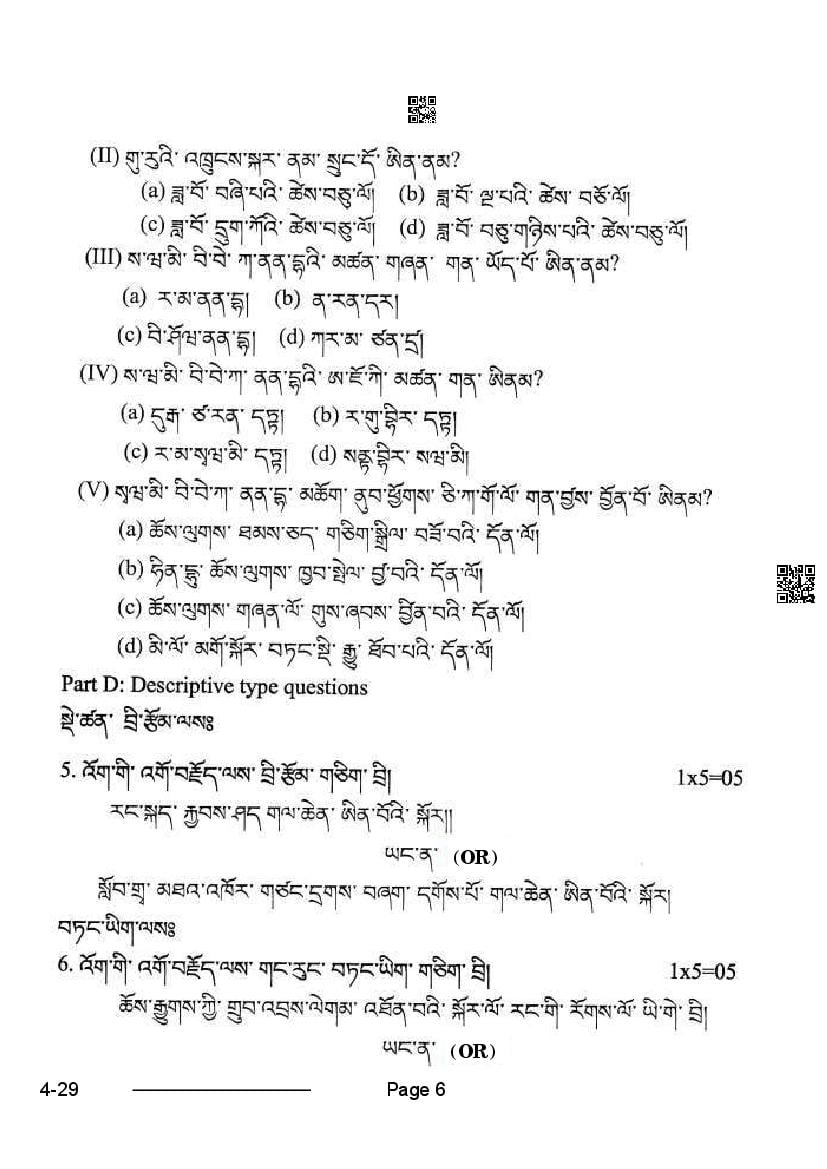 (II) གུ་རུའི་ འཁྲུངས་སྐར་ ནམ་ སྲུང་དོ་ ཨིན་ནམ?
(a) ཟླ་བོ་ བཞི་པའི་ ཚེས་བཅུ་ལོ། (b) ཟླ་བོ་ ལྔ་པའི་ ཚེས་ བཅོ་ལོ།
(c) ཟླ་བོ་ དྲུག་ཀོའི་ ཚེས་བཅུ་ལོ། (d) ཟླ་བོ་ བཅུ་གཉིས་པའི་ ཚེས་བཅུ་ལོ།
(III) ས་ཝ་མི་ བི་བེ་ ཀ་ནན་དྷའི་ མཚན་ གཞན་ གན་ ཡོད་པོ་ ཨིན་ནམ?
(a) ར་མ་ནན་དྷ། (b) ན་རན་དར།
(c) བི་ཤོཝ་ནན་དྷ། (d) ཀར་མ་ ཙན་དྲ།
(IV) ས་ཝ་མི་ བི་བེ་ཀ་ ནན་དྷའི་ ཨ་ཇོ་ཀི་ མཚན་ གན་ ཨིནམ?
(a) དུརྒ་ ཙ་རན་ དཏྟ། (b) ར་གུ་བྷིར་ དཏྟ།
(c) ར་མ་སྭཝ་མི་ དཏྟ། (d) སནྟ་བྷིར་ སཝ་མི།
(V) སྭཝ་མི་ བི་བེ་ཀ་ ནན་དྷ་ མཆོག་ ནུབ་ཕྱོགས་ ཅི་ཀ་གོ་ལོ་ གན་བྱས་ བྱོན་བོ་ ཨིནམ?
(a) ཆོས་ལུགས་ ཐམས་ཅད་ གཅིག་སྒྲིལ་ བཟོ་བའི་ དོན་ལོ།
(b) ཧིན་དྷུ་ ཆོས་ལུགས་ ཁྱབ་སྤེལ་ བྱ་བའི་ དོན་ལོ།
(c) ཆོས་ལུགས་ གཞན་ལོ་ གུས་ཞབས་ བྱིན་བའི་ དོན་ལོ།
(d) མི་ལོ་ མགོ་སྐོར་ བཏང་སྡི་ རྒྱུ་ ཐོབ་པའི་ དོན་ལོ།
Part D: Descriptive type questions
སྡེ་ཚན་ བྲི་རྩོམ་ལས༔
5. འོག་གི་ འགོ་བརྗོད་ལས་ བྲི་རྩོམ་ གཅིག་ བྲི། 1x5=05
རང་སྐད་ རྐྱབས་ཤད་ གལ་ཆེན་ ཨིན་བོའི་ སྐོར།།
ཡང་ན་ (OR)
སློབ་གྲྭ་ མཐའ་འཁོར་ གཙང་དྲགས་ བཞག་ དགོས་པོ་ གལ་ཆེན་ ཨིན་བོའི་ སྐོར།
བཏང་ཡིག་ལས༔
6. འོག་གི་ འགོ་བརྗོད་ལས་ གང་རུང་ བཏང་ཡིག་ གཅིག་ བྲི། 1x5=05
ཆོས་རྒྱུགས་ཀྱི་ གྲུབ་འབྲས་ལེགམ་ འཐོན་བའི་ སྐོར་ལོ་ རང་གི་ རོགས་ལོ་ ཡི་གེ་ བྲི།
ཡང་ན་ (OR)
4-29 Page 6